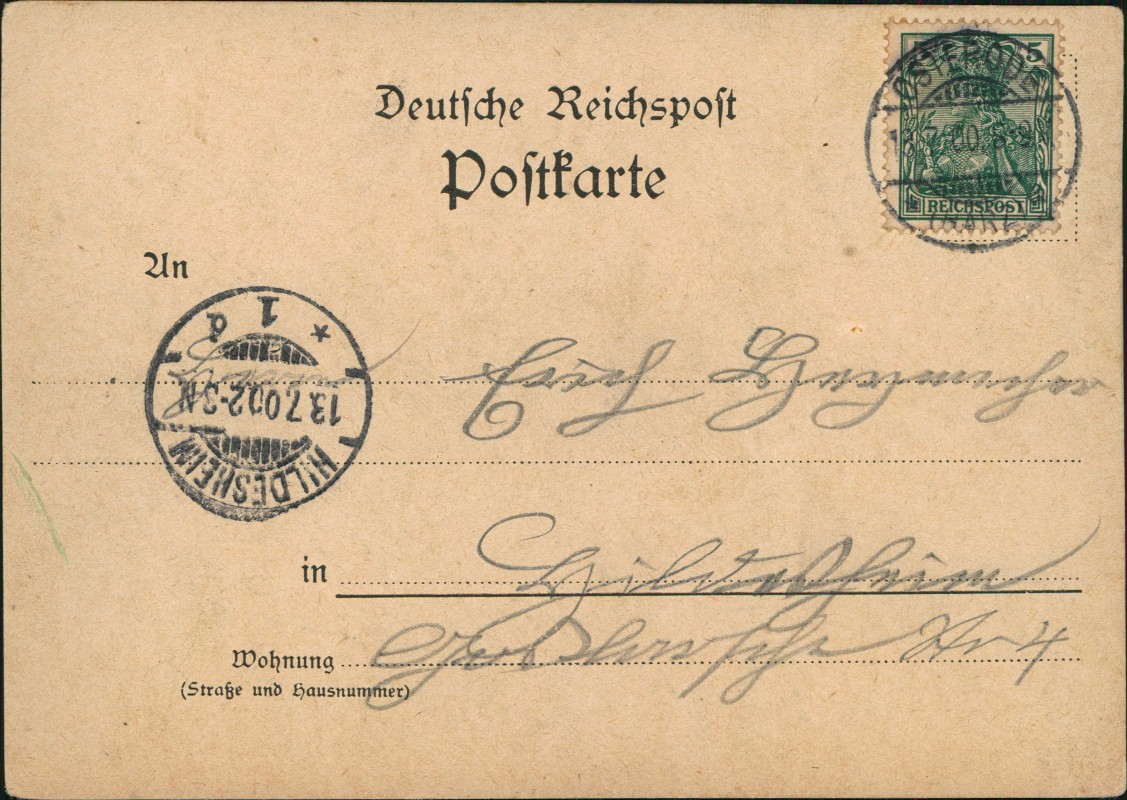 Deutsche Reichspost
Postkarte
5
REICHSPOST
OSTERODE
13.7.00. 8-9
(HARZ)
An
1 d
*
13.7.00.2-3N.
HILDESHEIM
Herrn Erich
in Hildesheim
Wohnung Goslarsche Str 4
(Straße und Hausnummer)